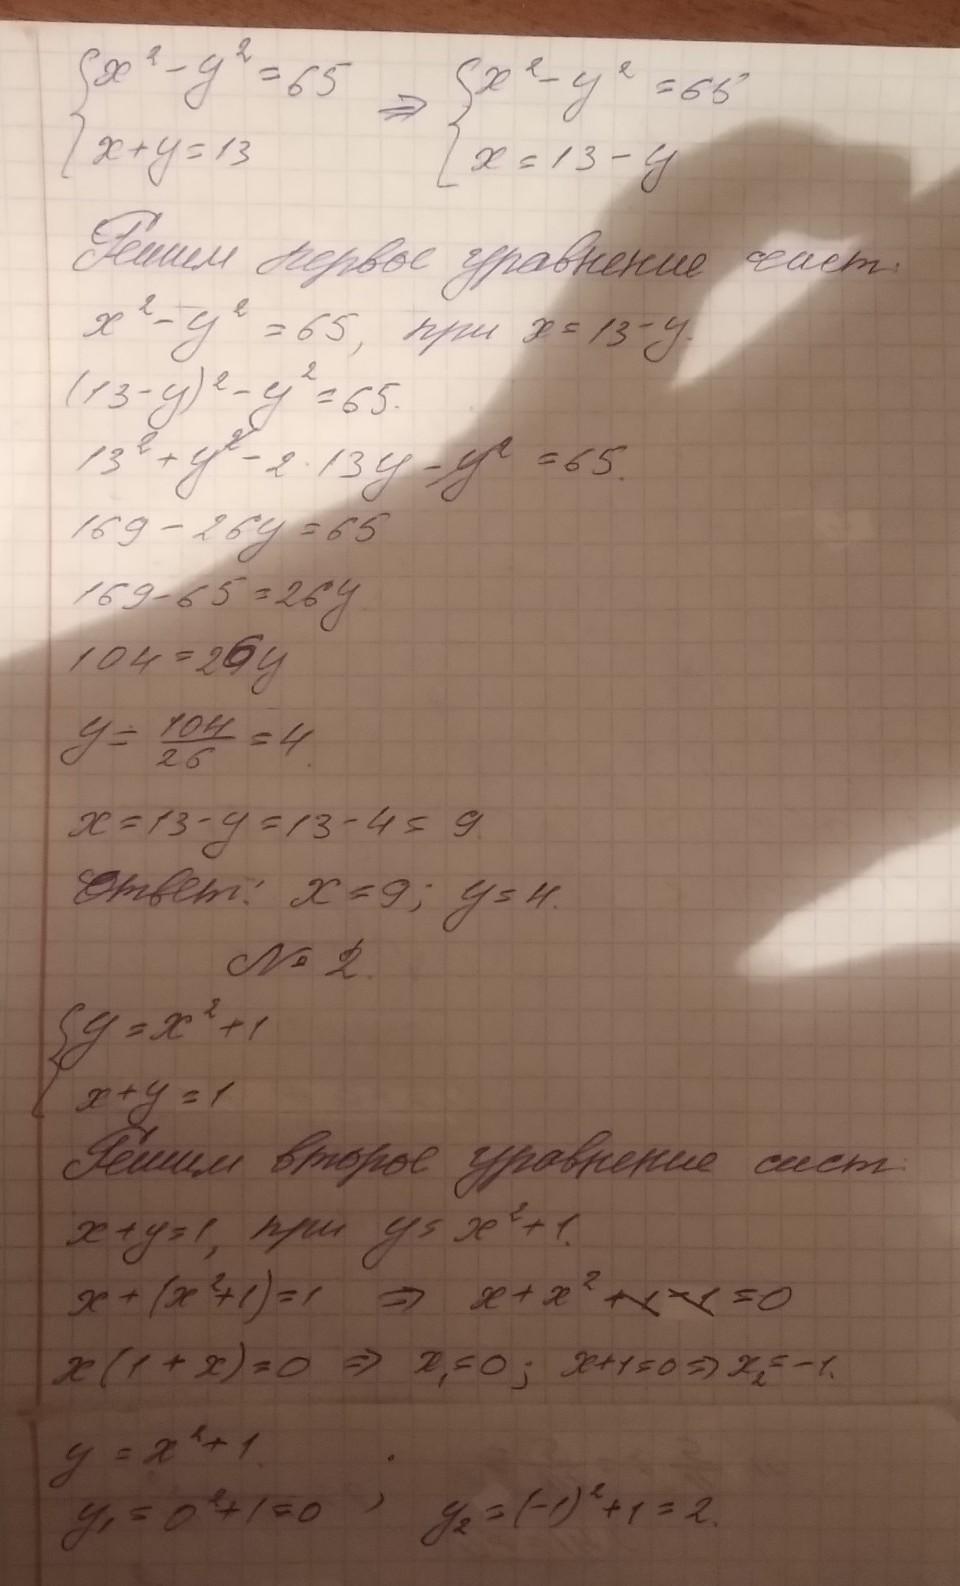 {x² - y² = 65 ⇒ {x² - y² = 65
{x + y = 13 {x = 13 - y
Решим первое уравнение сист.
x² - y² = 65, при x = 13 - y.
(13 - y)² - y² = 65.
13² + y² - 2·13y - y² = 65.
169 - 26y = 65
169 - 65 = 26y
104 = 26y
y = 104/26 = 4.
x = 13 - y = 13 - 4 = 9
Ответ: x = 9; y = 4.
№ 2.
{y = x² + 1
{x + y = 1
Решим второе уравнение сист.
x + y = 1, при y = x² + 1.
x + (x² + 1) = 1 ⇒ x + x² + 1 - 1 = 0
x(1 + x) = 0 ⇒ x₁ = 0; x + 1 = 0 ⇒ x₂ = -1.
y = x² + 1.
y₁ = 0² + 1 = 0 ; y₂ = (-1)² + 1 = 2.